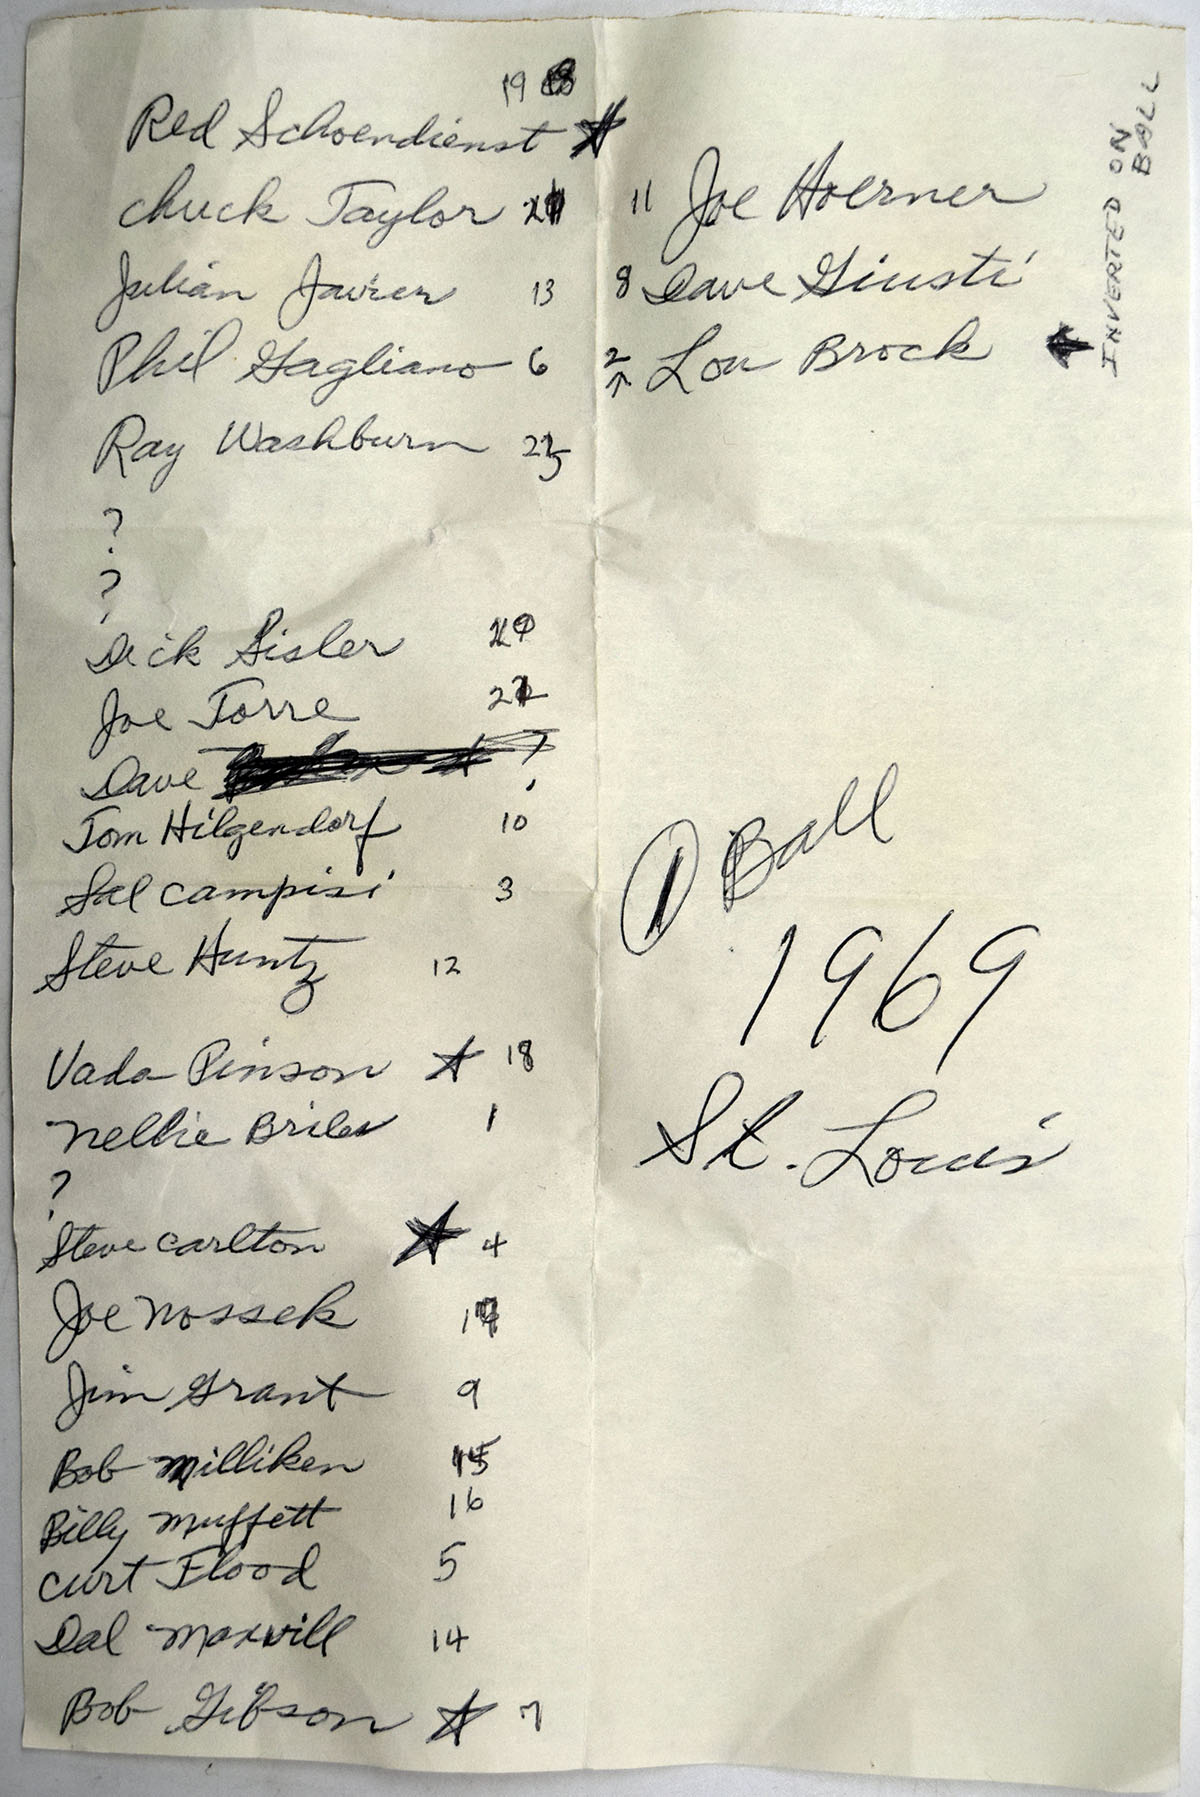 19
Red Schoendienst
Chuck Taylor
Julian Javier 13
Phil Gagliano 6
Ray Washburn
?
?
Dick Sisler
Joe Torre
Dave
Tom Hilgendorf 10
Sal Campisi 3
Steve Huntz 12
Vada Pinson 18
Nellie Briles 1
?
Steve Carlton 4
Joe Nossek
Jim Grant 9
Bob Milliken 15
Billy Muffett 16
Curt Flood 5
Dal Maxvill 14
Bob Gibson 7
11 Joe Hoerner
8 Dave Giusti
2 Lou Brock
INVERTED ON
BALL
1 Ball
1969
St. Louis